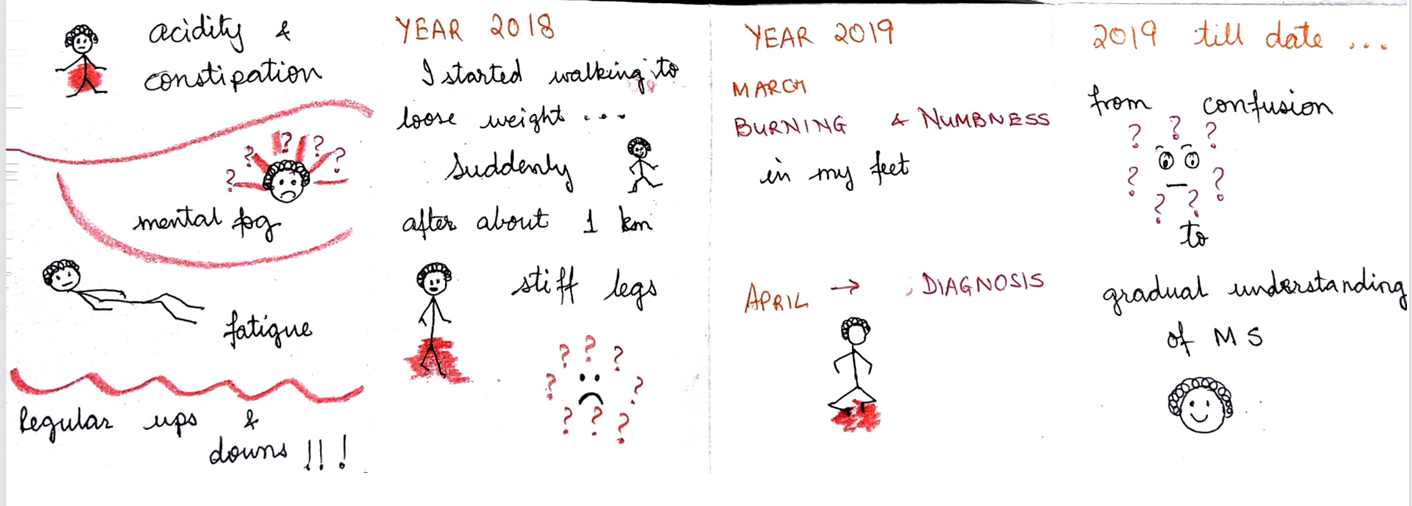 acidity &
constipation
? ? ? ? ?
mental fog
fatigue
Regular ups &
downs !!!
YEAR 2018
I started walking to
loose weight ...
Suddenly
after about 1 km
stiff legs
? ? ? ? ? ? ? ?
YEAR 2019
MARCH
BURNING & NUMBNESS
in my feet
APRIL → DIAGNOSIS
2019 till date ...
from confusion
? ? ? ? ? ? ? ?
to
gradual understanding
of MS